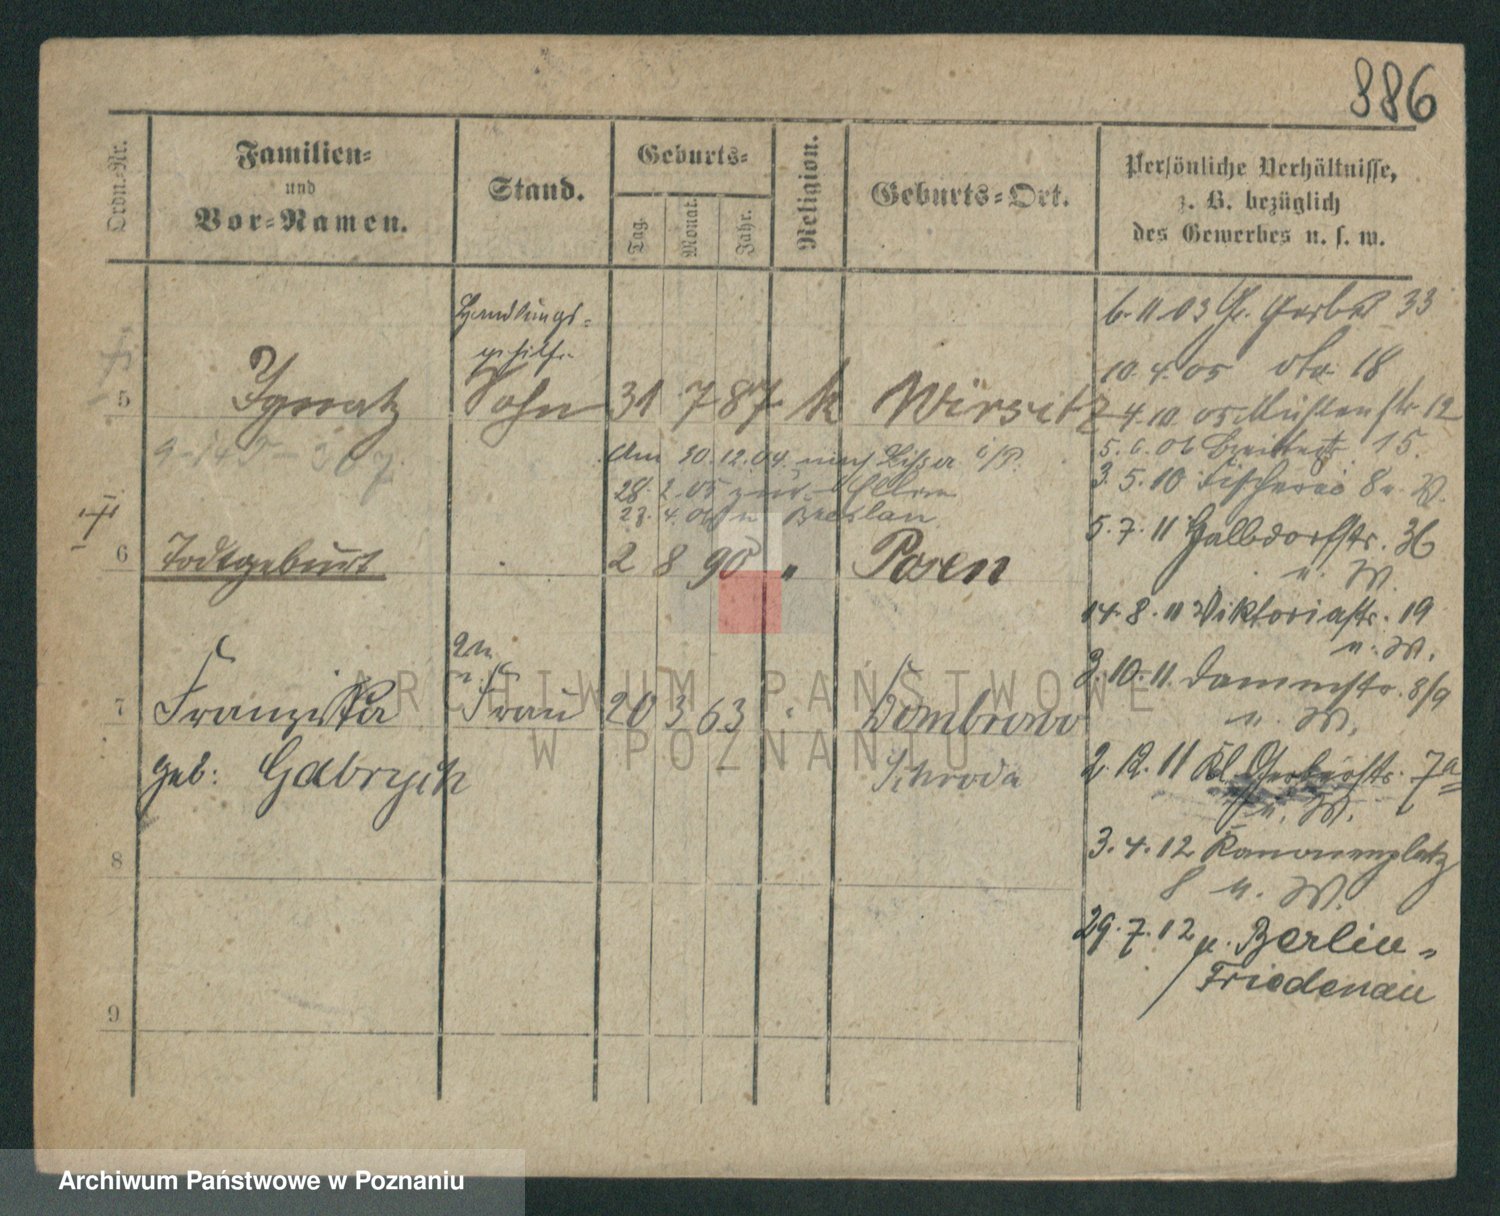 886
Ordn.-Nr.
Familien-
und
Vor-Namen.
Stand.
Geburts-
Tag.
Monat.
Jahr.
Religion.
Geburts-Ort.
Persönliche Verhältnisse,
z. B. bezüglich
des Gewerbes u. s. w.
Handlungs-
gehilfe
5 Ignatz Sohn 31 7 87 k Wirsitz
Am 30.12.04 nach Lissa i/P.
28. 2. 05 zur. Eltern
23. 4. 06 n Breslau
6 Todtgeburt 2 8 90 " Posen
7 Franziska Frau 20 3 63 Dombrowo
geb: Gabrych Schroda
8
9
6. 11 03 Gr. Gerbst 33
10. 4. 05 dto 18
4. 10. 05 Mühlenstr. 12
5. 6. 06 Breitestr 15.
3. 5. 10 Fischerei 8 u. W.
5. 7. 11 Halbdorfstr. 36
u. W.
14. 8. 11 Viktoriastr. 19
u. W.
3. 10. 11. Dammstr. 8/9
u. W.
2. 12. 11 Kl. Gerberstr. 7a
u. W.
3. 4. 12 Kanonenplatz
8 u. W.
29. 7. 12 n. Berlin-
Friedenau
ARCHIWUM PAŃSTWOWE
W POZNANIU
Archiwum Państwowe w Poznaniu